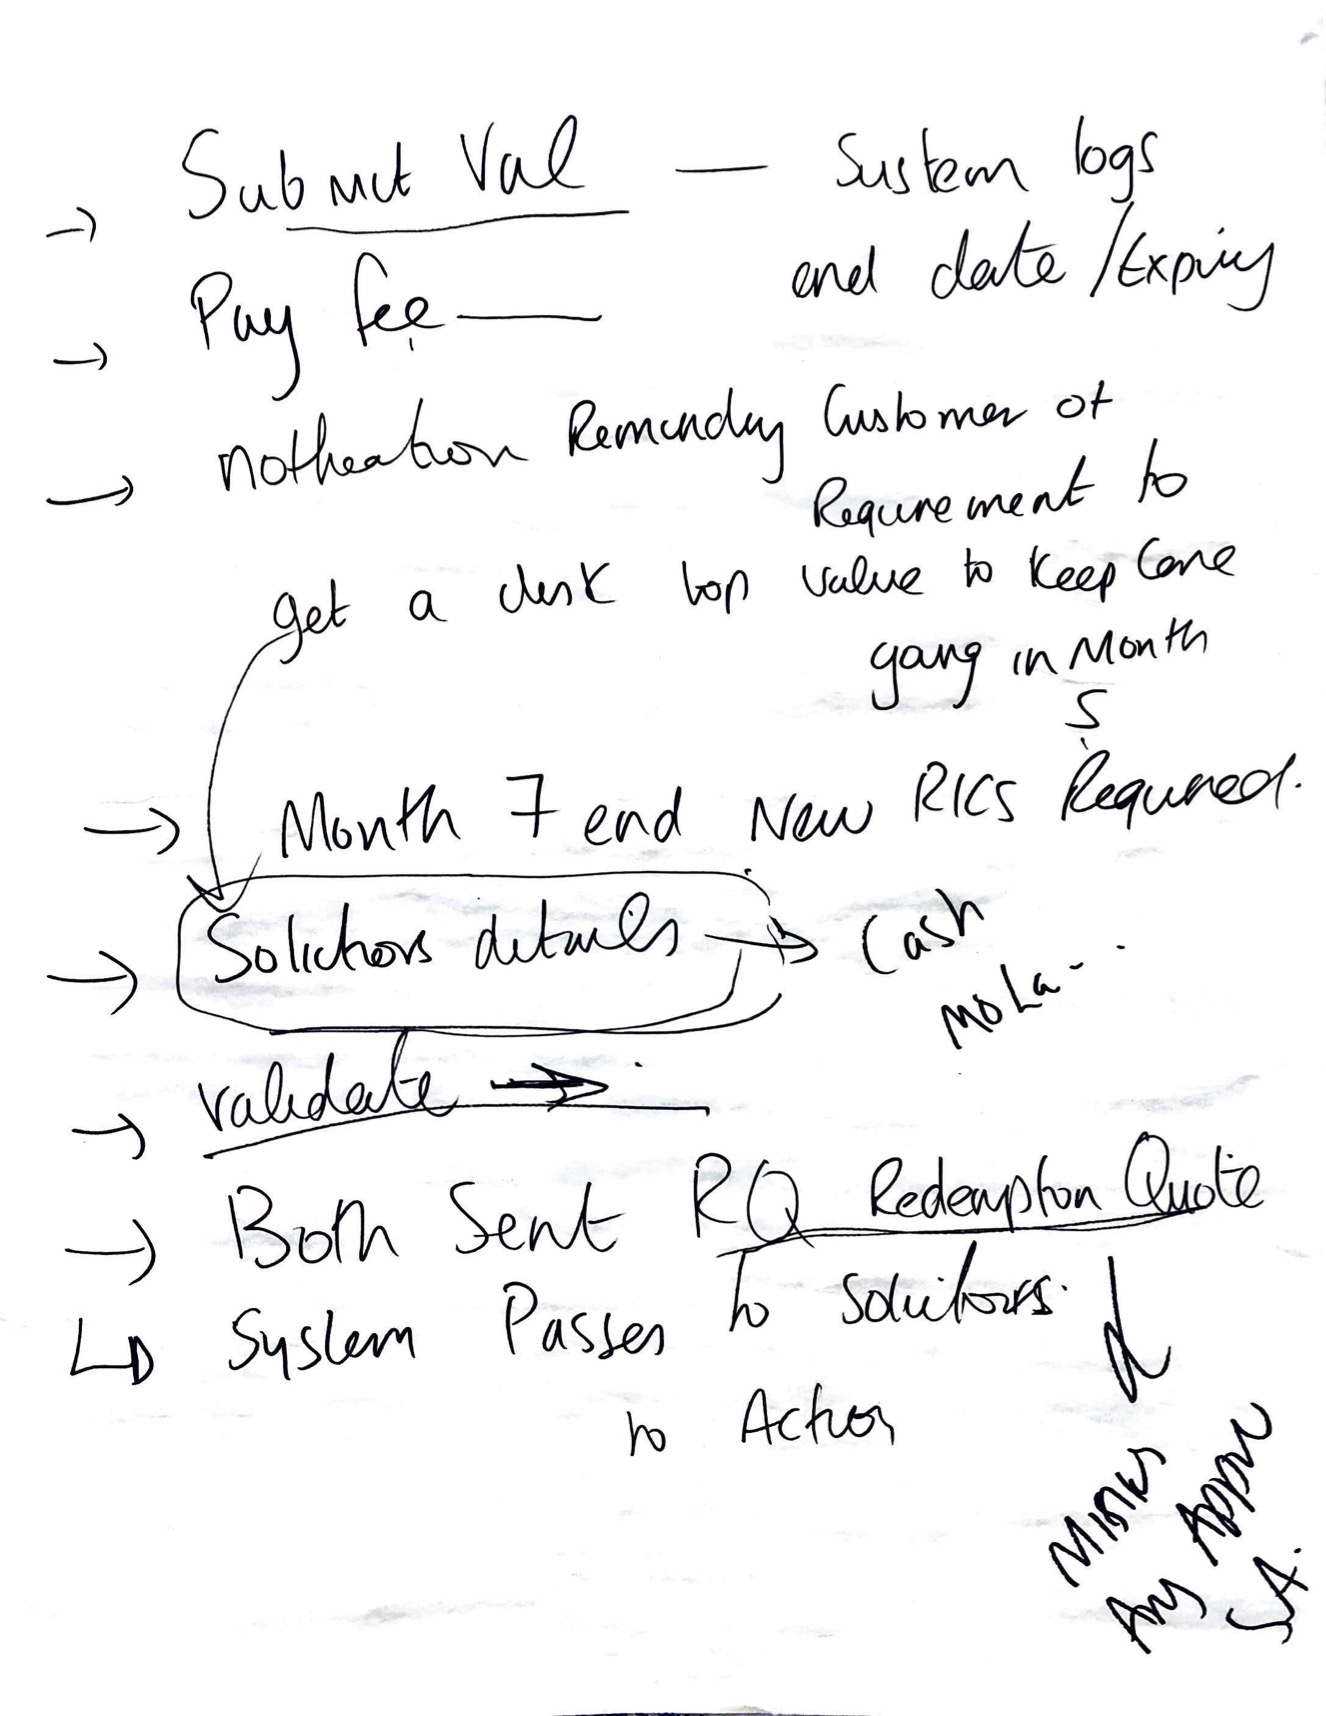 → Submit Val — System logs
end date / Expiry
→ Pay fee —
→ notification Reminding Customer of
Requirement to
get a desk top value to Keep Case
going in Month
5
→ Month 7 end New RICS Required.
→ Solicitors details → Cash
→ validate →
→ Both Sent RQ Redemption Quote
↳ System Passes to Solicitors.
to Action
Minus
Any